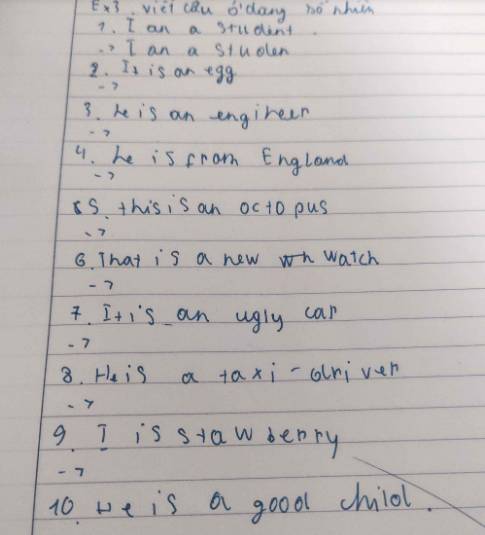 Ex3. viết câu ở dạng số nhiều
1. I an a student.
-> I an a studen
2. It is an egg
->
3. he is an engineer
->
4. he is from England
->
5. this is an octopus
->
6. That is a new watch
->
7. It is an ugly car
->
8. He is a taxi-driver
->
9. I is stawberry
->
10. He is a good child.